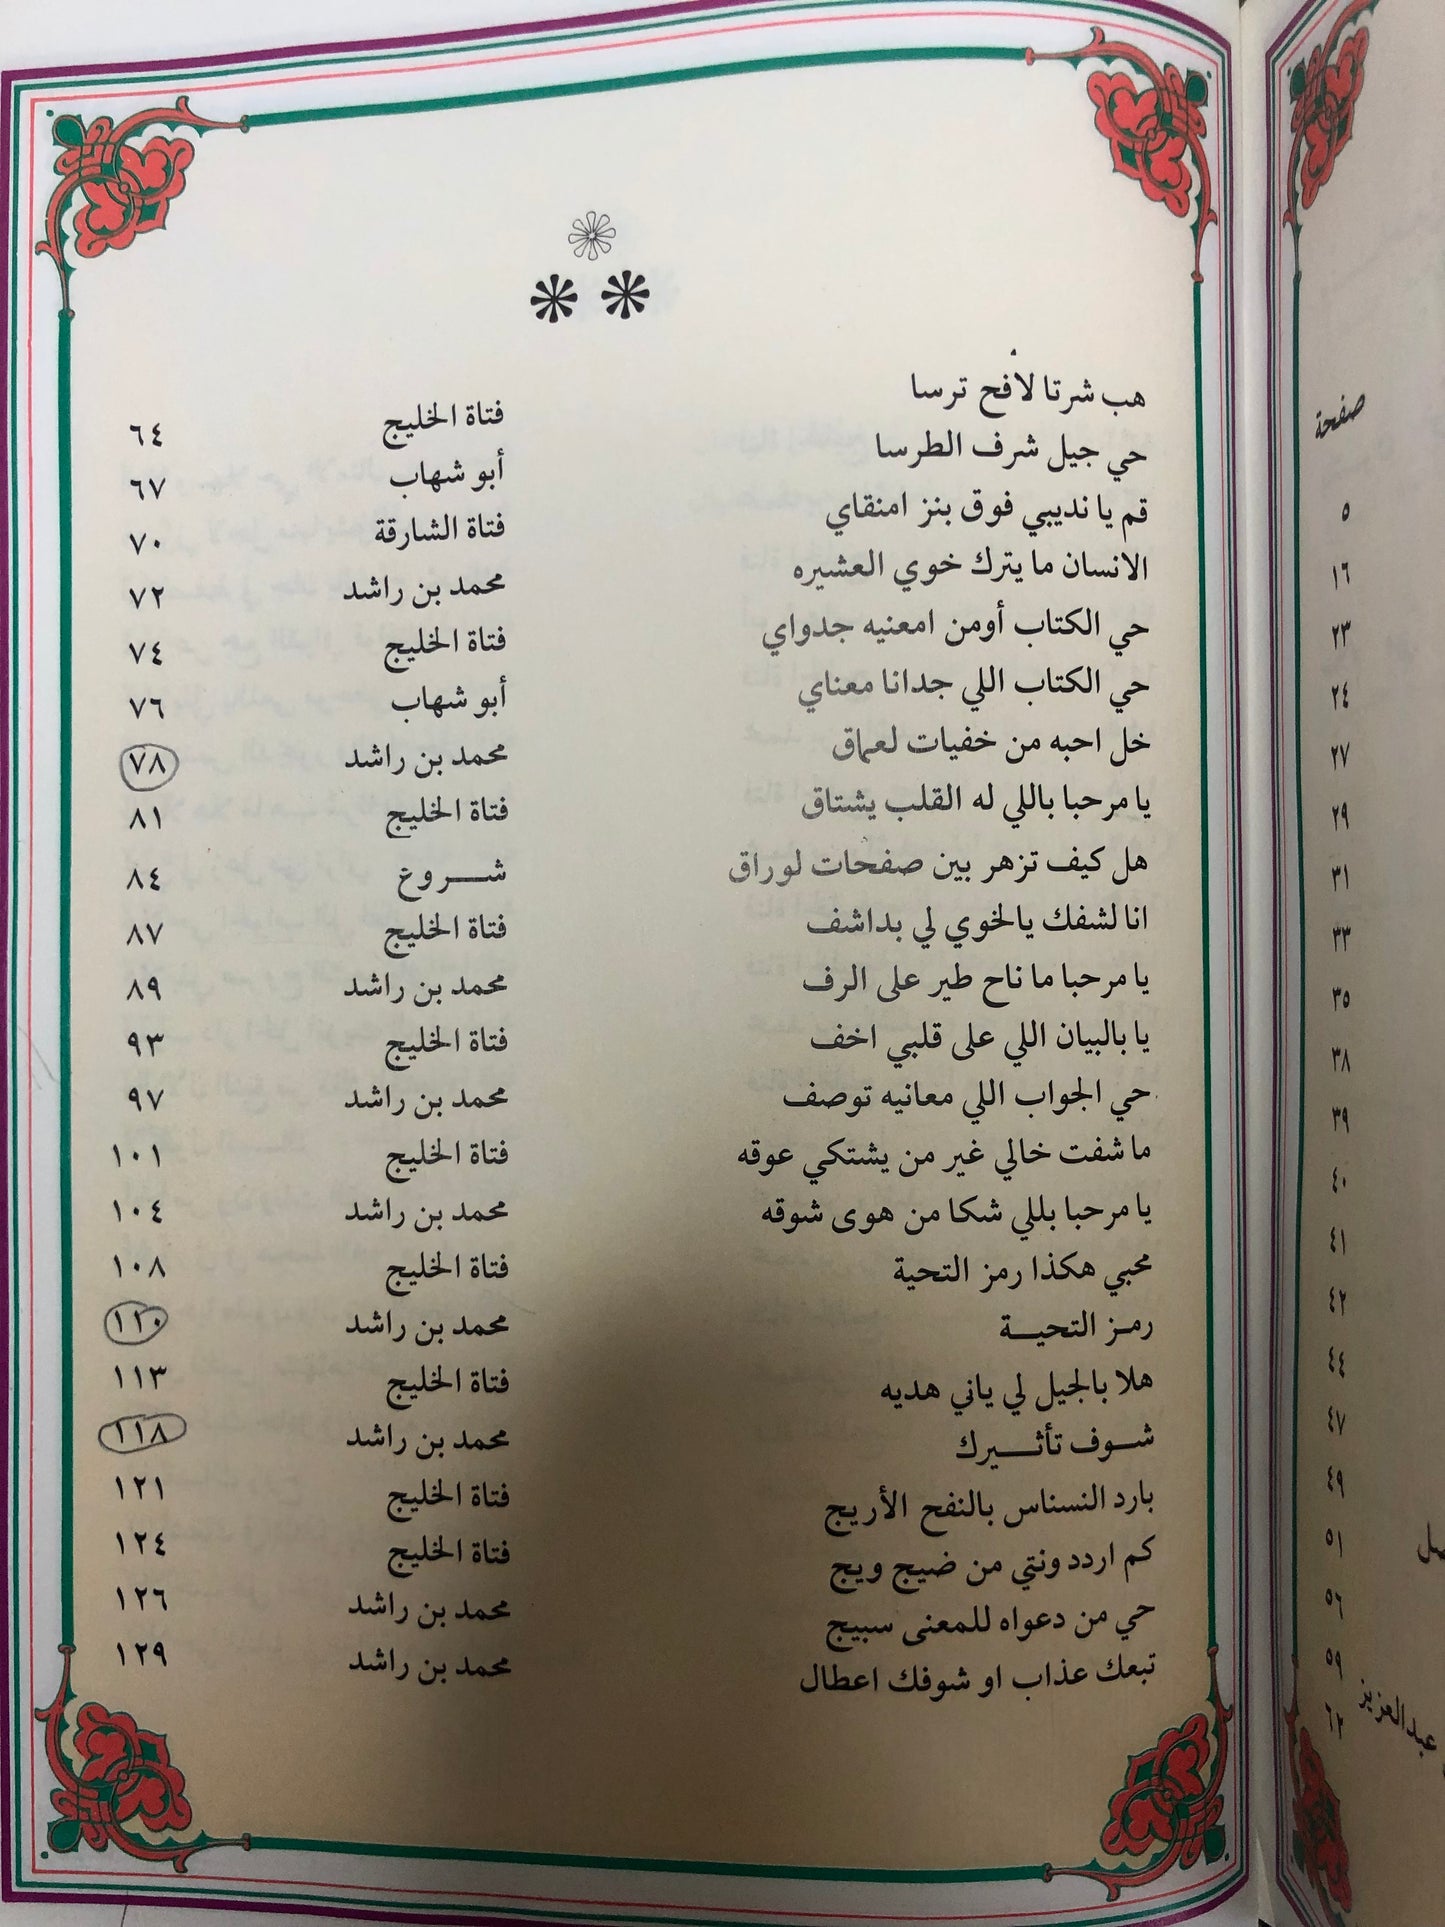 هب شرتا لافح ترسا فتاة الخليج ٦٤
حي جيل شرف الطرسا أبو شهاب ٦٧
قم يا نديبي فوق بنز امنقاي فتاة الشارقة ٧٠
الانسان ما يترك خوي العشيره محمد بن راشد ٧٢
حي الكتاب أومن امعنيه جدواي فتاة الخليج ٧٤
حي الكتاب اللي جدانا معناي أبو شهاب ٧٦
خل احبه من خفيات لعماق محمد بن راشد ٧٨
يا مرحبا باللي له القلب يشتاق فتاة الخليج ٨١
هل كيف تزهر بين صفحات لوراق شـــروغ ٨٤
انا لشفك يالخوي لي بداشف فتاة الخليج ٨٧
يا مرحبا ما ناح طير على الرف محمد بن راشد ٨٩
يا بالبيان اللي على قلبي اخف فتاة الخليج ٩٣
حي الجواب اللي معانيه توصف محمد بن راشد ٩٧
ما شفت خالي غير من يشتكي عوقه فتاة الخليج ١٠١
يا مرحبا بللي شكا من هوى شوقه محمد بن راشد ١٠٤
محبي هكذا رمز التحية فتاة الخليج ١٠٨
رمـز التحيــة محمد بن راشد ١١٠
هلا بالجيل لي ياني هديه فتاة الخليج ١١٣
شــوف تأثــيرك محمد بن راشد ١١٨
بارد النسناس بالنفح الأريج فتاة الخليج ١٢١
كم اردد ونتي من ضيج ويج فتاة الخليج ١٢٤
حي من دعواه للمعنى سبيج محمد بن راشد ١٢٦
تبعك عذاب او شوفك اعطال محمد بن راشد ١٢٩
صفحة
٥
١٦
٢٣
٢٤
٢٧
٢٩
٣١
٣٣
٣٥
٣٨
٣٩
٤٠
٤١
٤٢
٤٤
٤٧
٤٩
٥١
٥٦
٥٩
عبدالعزيز ٦٢